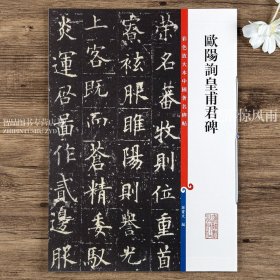 彩色放大本中國著名碑帖
歐陽詢皇甫君碑
孫寶文 編
榮名蕃牧則位重首
袨服睢陽則譽光
上客既而蒼精委馭
炎運啓圖作貳邊服